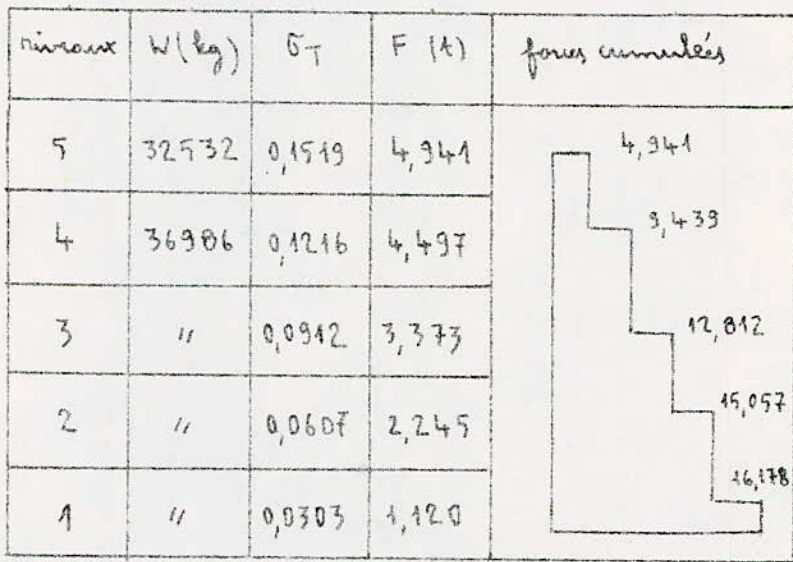 niveaux W(kg) σT F (t) forces cumulées
5 32532 0,1519 4,941 4,941
4 36986 0,1216 4,497 9,439
3 " 0,0912 3,373 12,812
2 " 0,0607 2,245 15,057
1 " 0,0303 1,120 16,178